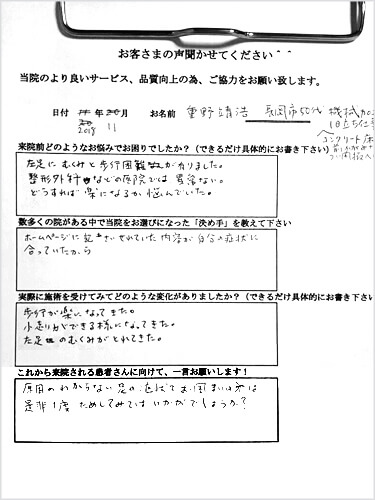 お客さまの声聞かせてください＾＾
当院のより良いサービス、品質向上の為、ご協力をお願い致します。
日付 年 月 お名前 重野靖浩 長岡市50代 機械加工
2018 11 1日立ち仕事
コンクリート床
来院前どのようなお悩みでお困りでしたか？（できるだけ具体的にお書き下さい）
左足にむくみと歩行困難がありました。
整形外科などの医院では異常ない。
どうすれば楽になるか悩んでいた。
数多くの院がある中で当院をお選びになった「決め手」を教えて下さい
ホームページに記されていた内容が自分の症状に
合っていたから
実際に施術を受けてみてどのような変化がありましたか？（できるだけ具体的にお書き下さい
歩行が楽になってきた。
小走りができる様になってきた。
左足のむくみがとれてきた。
これから来院される患者さんに向けて、一言お願いします！
原因のわからない足の症状でお困りの方は
是非1度ためしてみてはいかがでしょうか？